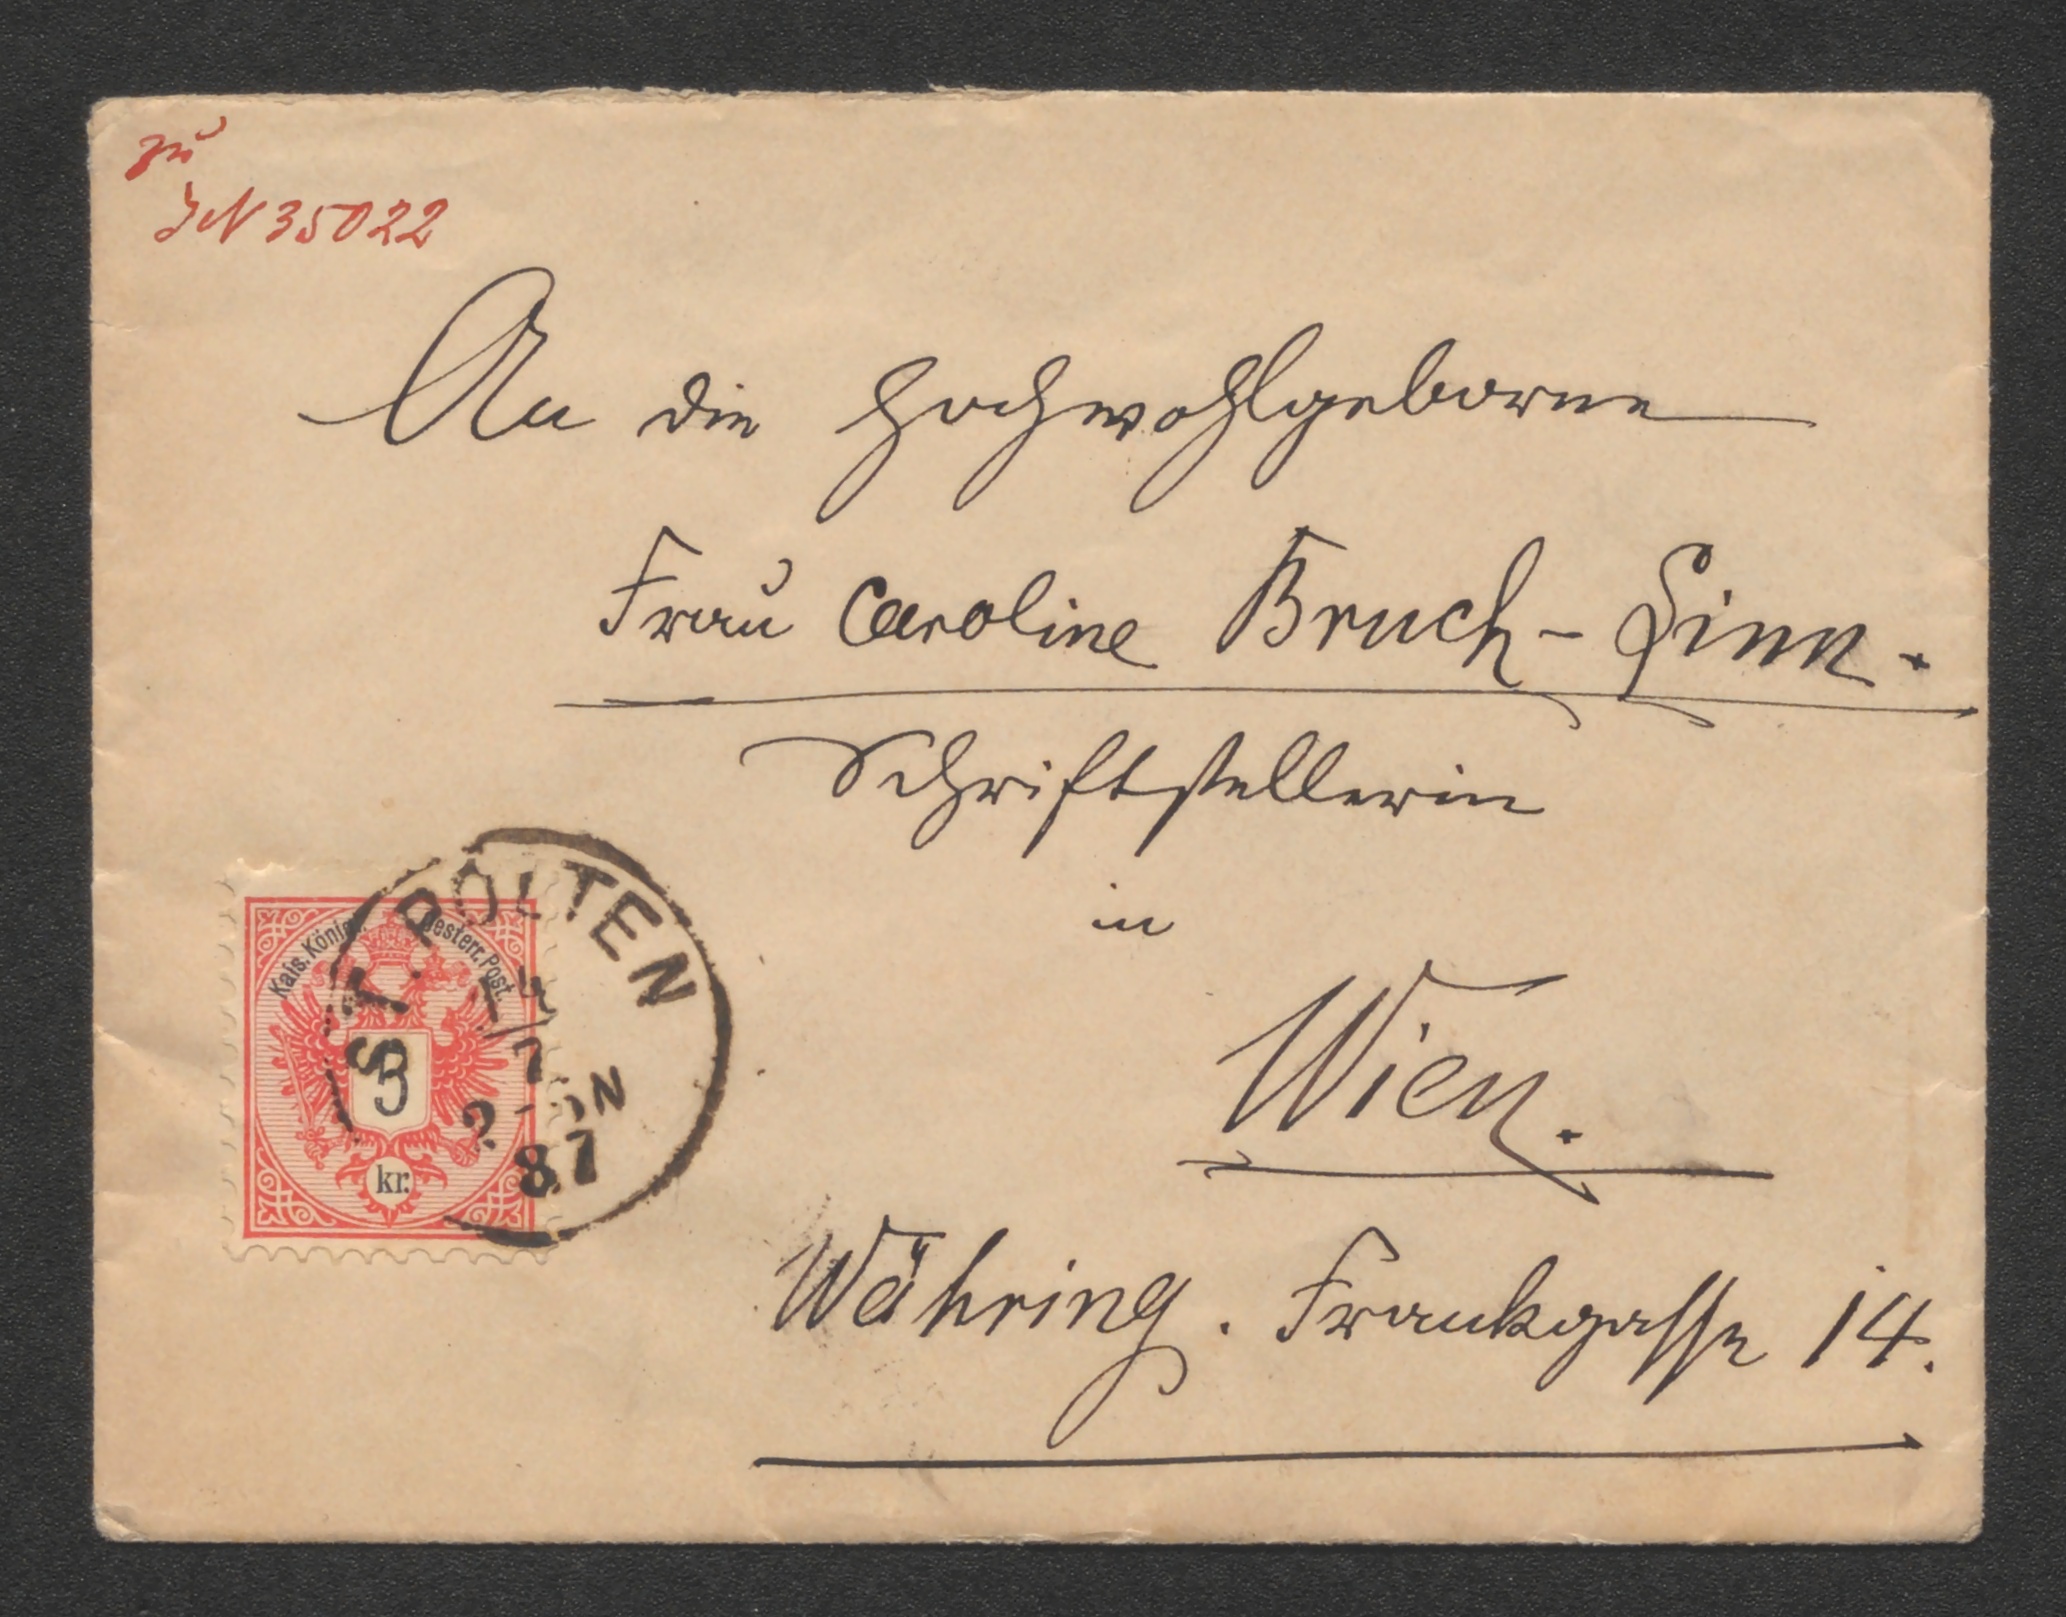 zu
IN 35022
An die Hochwohlgeborne
Frau Caroline Bruch-Sinn.
Schriftstellerin
in
Wien.
Währing. Frankgasse 14.
ST. PÖLTEN
87
Kais. Königl. Oesterr. Post.
3
kr.